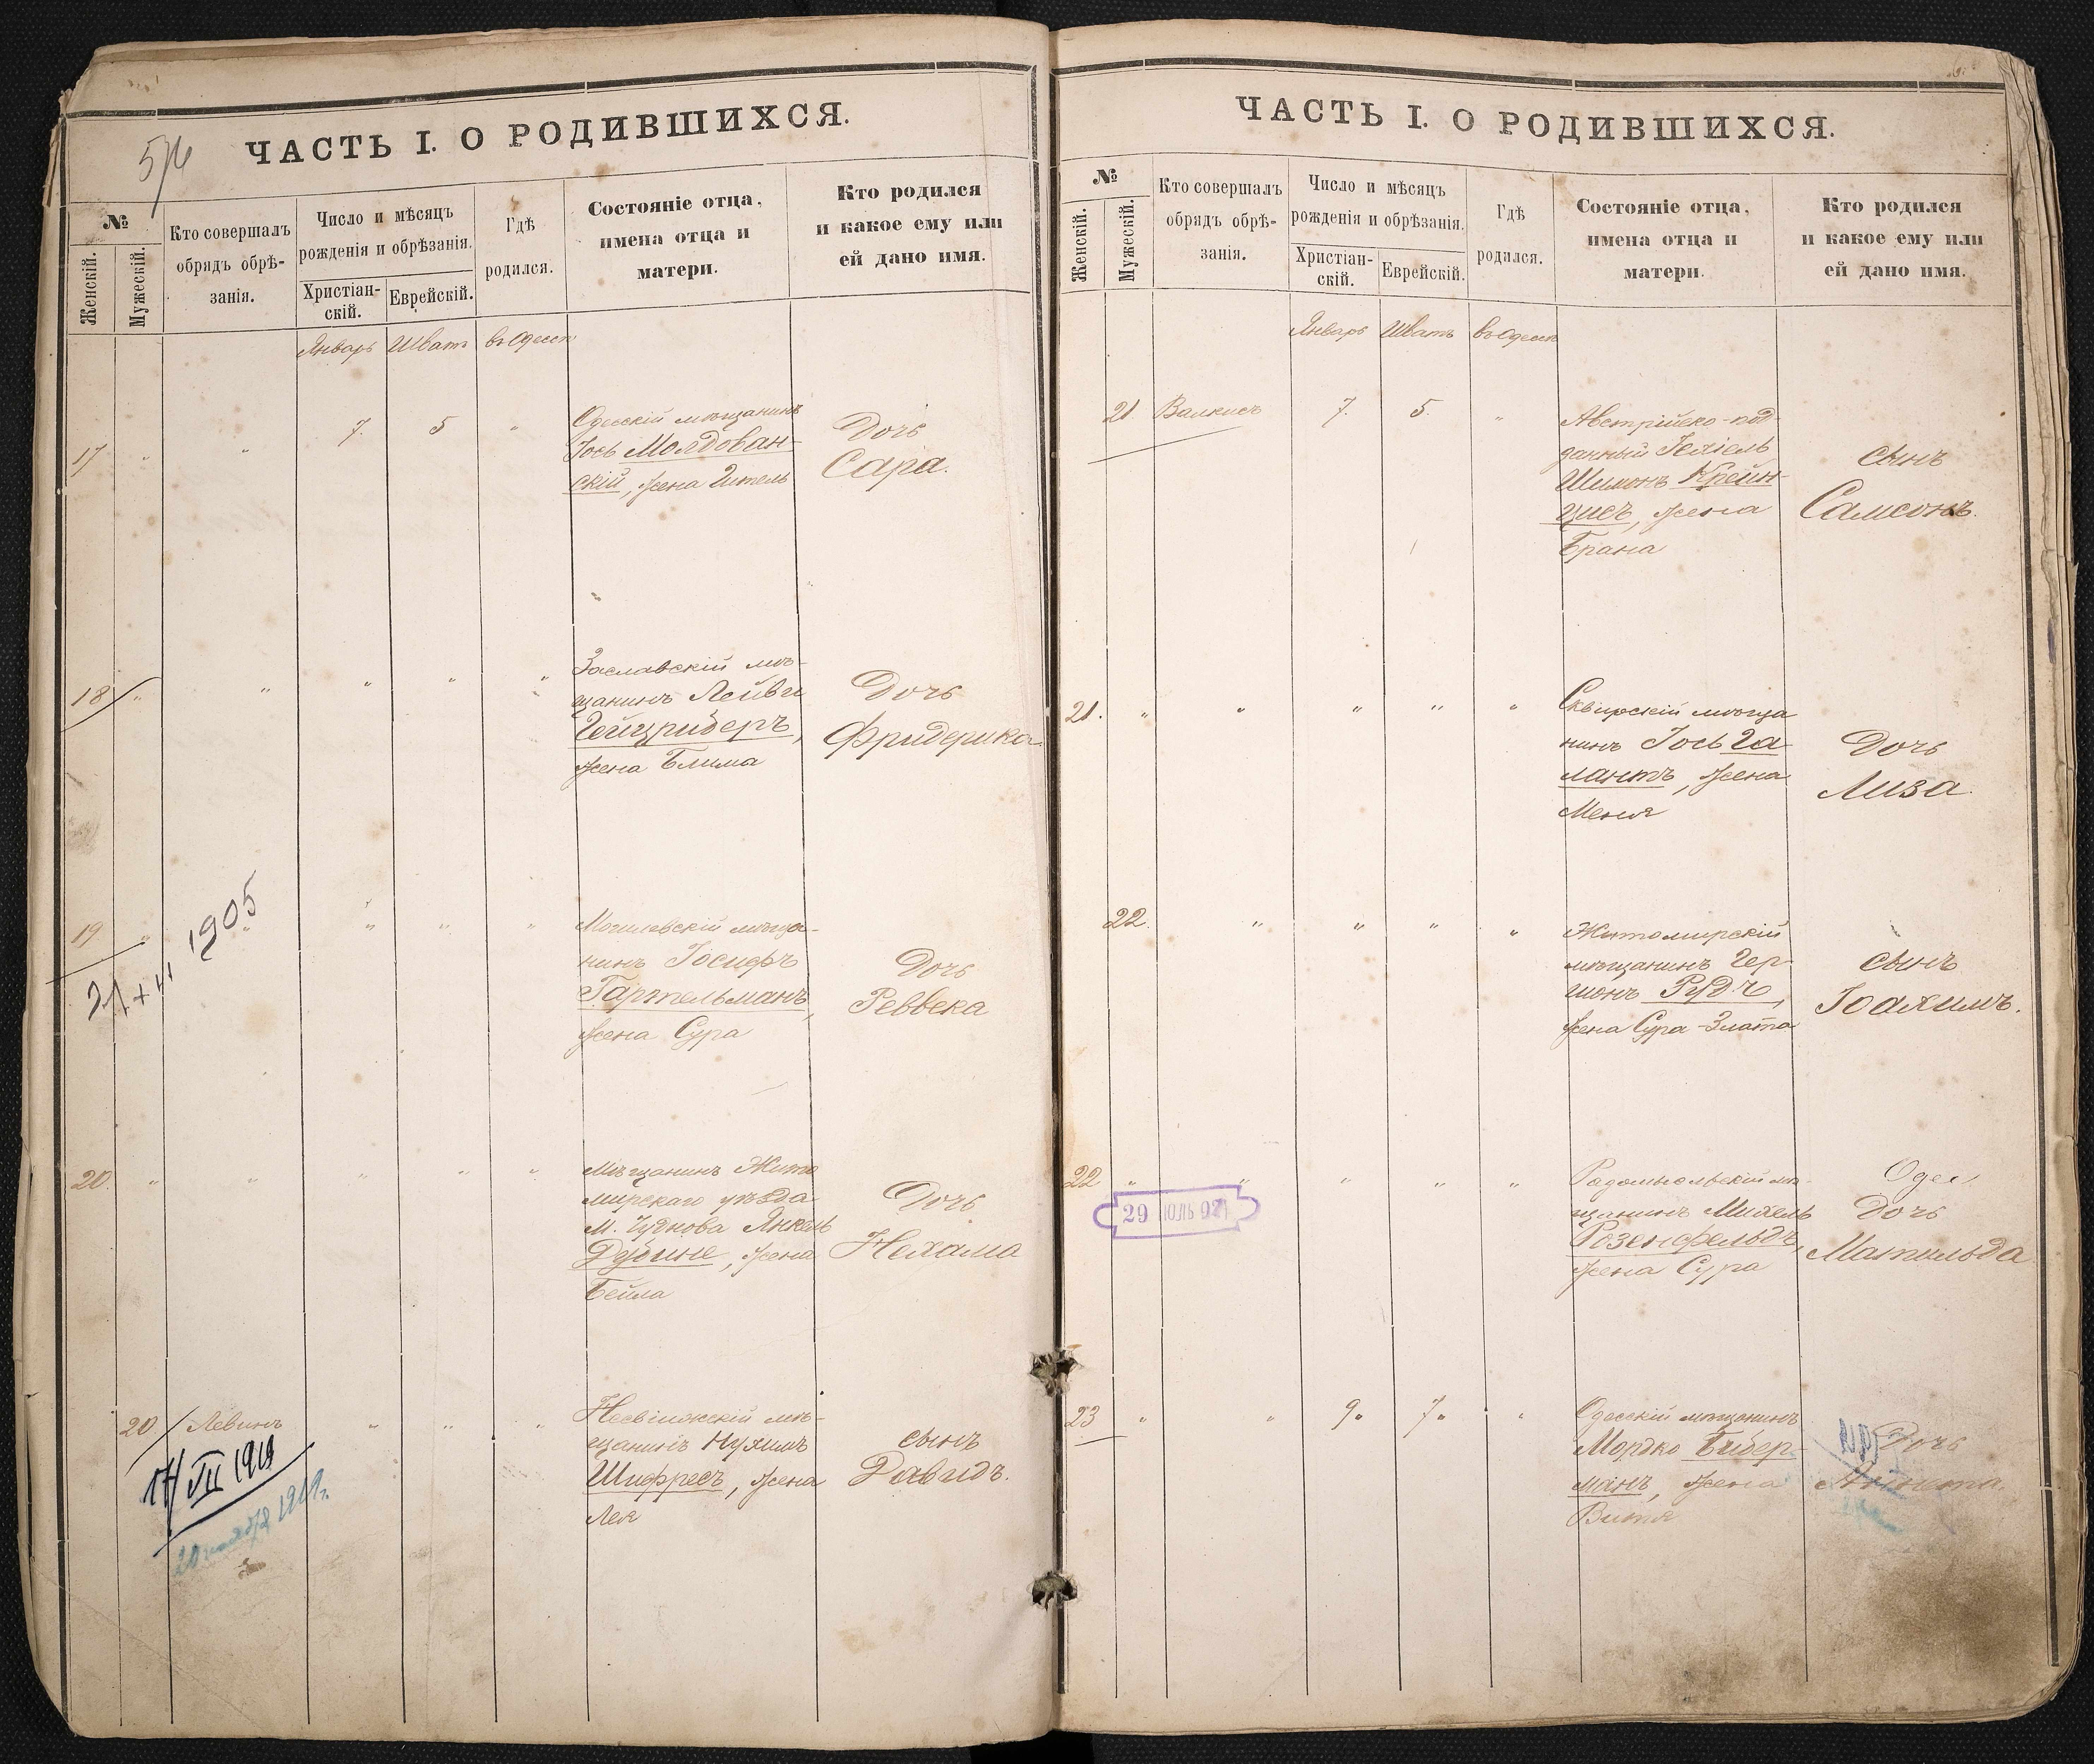 ЧАСТЬ I. О РОДИВШИХСЯ.
№
Женскій.
Мужескій.
Кто совершалъ
обрядъ обрѣ-
занія.
Число и мѣсяцъ
рожденія и обрѣзанія.
Христіан-
скій.
Еврейскій.
Гдѣ
родился.
Состояніе отца,
имена отца и
матери.
Кто родился
и какое ему или
ей дано имя.
Январь Шватъ въ Одессѣ
17 " " 7. 5 "
Одесскій мѣщанинъ
Іось Молдован-
скій, жена Гитель
Дочь
Сара.
18 " " " " "
Заславскій мѣ-
щанинъ Лейви
Гейцриберъ,
жена Блима
Дочь
Фридерика.
19 " " " " "
1905
Могилевскій мѣща-
нинъ Іосифъ
Гартельманъ,
жена Сура
Дочь
Реввека
20. " " " " "
Мѣщанинъ Жито
мирскаго уѣзда
М. Чуднова Янкель
жена
Бейла
Дочь
Нехама
20 Левинъ " " "
17/VII 1919
1919г.
Несвіжскій мѣ-
щанинъ Нухимъ
Шифресъ, жена
Лея
сынъ
Давидъ.
ЧАСТЬ I. О РОДИВШИХСЯ.
№
Женскій.
Мужескій.
Кто совершалъ
обрядъ обрѣ-
занія.
Число и мѣсяцъ
рожденія и обрѣзанія.
Христіан-
скій.
Еврейскій.
Гдѣ
родился.
Состояніе отца,
имена отца и
матери.
Кто родился
и какое ему или
ей дано имя.
Январь Шватъ въ Одессѣ
21 Валкисъ 7. 5. "
Австрійско-под-
данный Іехіель
Шимонъ Крейн-
цисъ, жена
Брана
сынъ
Самсонъ.
21. " " " " "
Сквирскій мѣща
нинъ Іось Га
лантъ, жена
Меня
Дочь
Лиза.
22. " " " "
Житомирскій
мѣщанинъ Гер-
шонъ Рудъ,
жена Сура-Злата
сынъ
Іоахимъ.
22 " " " " "
29 ІЮЛЬ 97
Радомысльскій мѣ-
щанинъ Михель
Розенфельдъ,
жена Сура
Дочь
Матильда
23 " " 9. 7. "
Одесскій мѣщанинъ
Мордко Бибер-
манъ, жена
Витя
Дочь